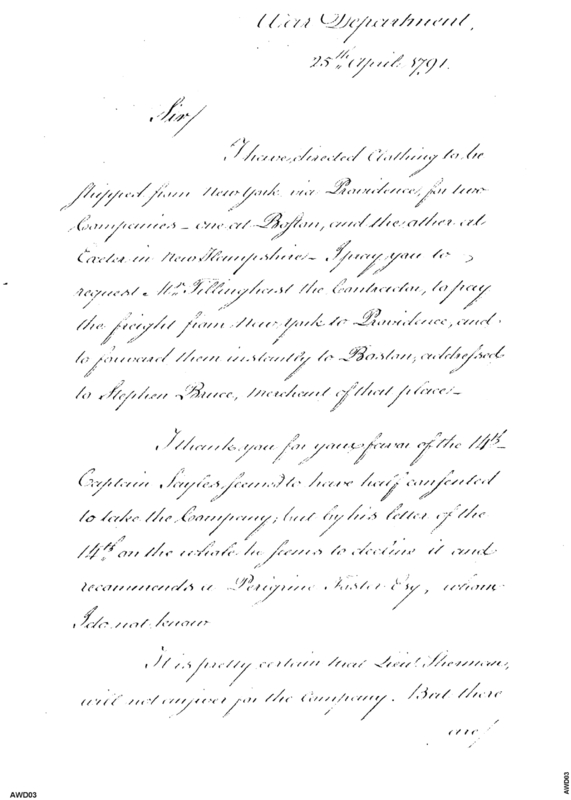 War Department,
25th April 1791.
Sir/
I have directed Clothing to be
shipped from New York via Providence, for two
Companies – one at Boston, and the other at
Exeter in New Hampshire – I pray you to
request Mr. Tillinghast the Contractor, to pay
the freight from New York to Providence, and
to forward them instantly to Boston, addressed
to Stephen Bruce, Merchant of that place –
I thank you for your favor of the 14th –
Captain Sayles seem'd to have half consented
to take the Company; but by his letter of the
14th on the whole he seems to decline it and
recommends a Peregrine Foster Esq, whom
I do not know
It is pretty certain that Lieut Sherman,
will not answer for the Company. But there
are/
AWD03
AWD03